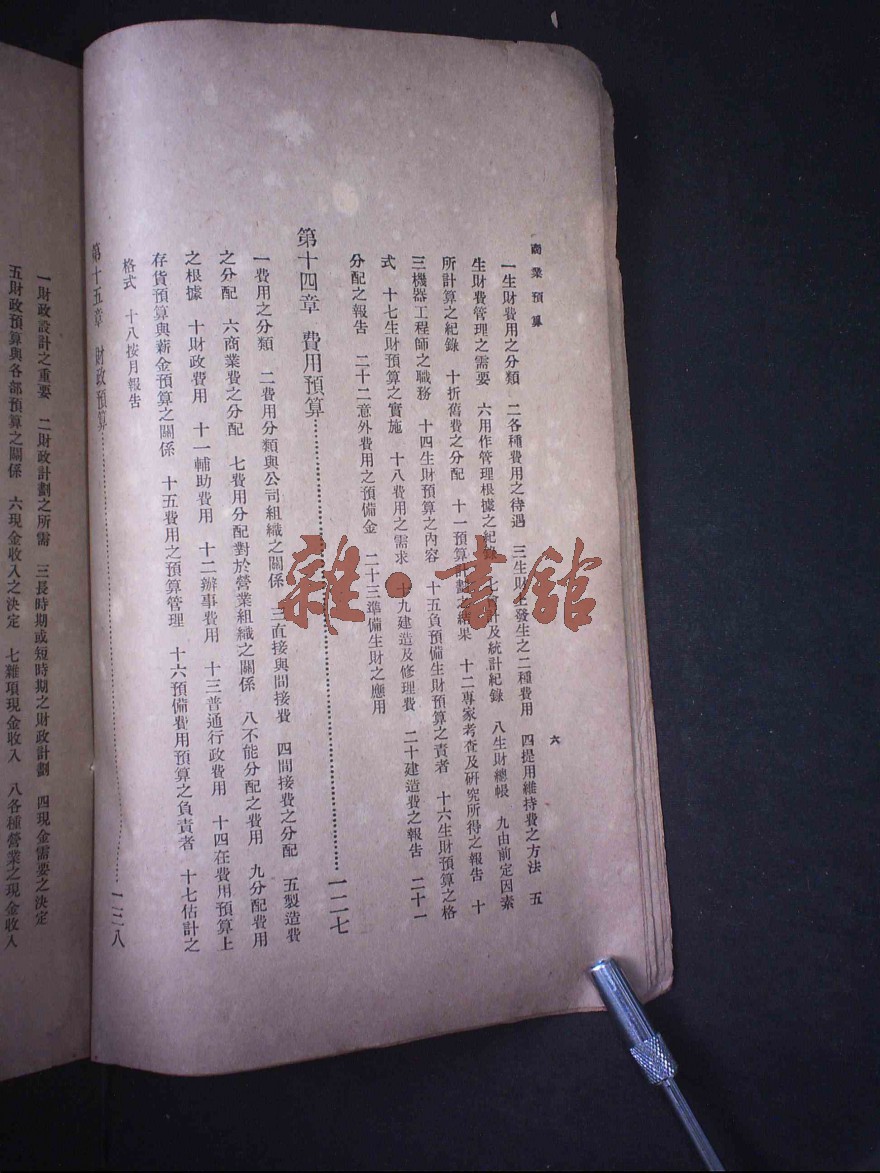 商業預算
六
一生財費用之分類　二各種費用之待遇　三生財上發生之二種費用　四提用維持費之方法　五
生財費管理之需要　六用作管理根據之紀錄　七會計及統計紀錄　八生財總帳　九由前定因素
所計算之紀錄　十折舊費之分配　十一預算計劃之結果　十二專家考查及研究所得之報告　十
三機器工程師之職務　十四生財預算之內容　十五負預備生財預算之責者　十六生財預算之格
式　十七生財預算之實施　十八費用之需求　十九建造及修理費　二十建造費之報告　二十一
分配之報告　二十二意外費用之預備金　二十三準備生財之應用
第十四章　費用預算……一二七
一費用之分類　二費用分類與公司組織之關係　三直接與間接費　四間接費之分配　五製造費
之分配　六商業費之分配　七費用分配對於營業組織之關係　八不能分配之費用　九分配費用
之根據　十財政費用　十一輔助費用　十二辦事費用　十三普通行政費用　十四在費用預算上
存貨預算與薪金預算之關係　十五費用之預算管理　十六預備費用預算之負責者　十七估計之
格式　十八按月報告
第十五章　財政預算……一三八
一財政設計之重要　二財政計劃之所需　三長時期或短時期之財政計劃　四現金需要之決定
五財政預算與各部預算之關係　六現金收入之決定　七雜項現金收入　八各種營業之現金收入
雜·書館